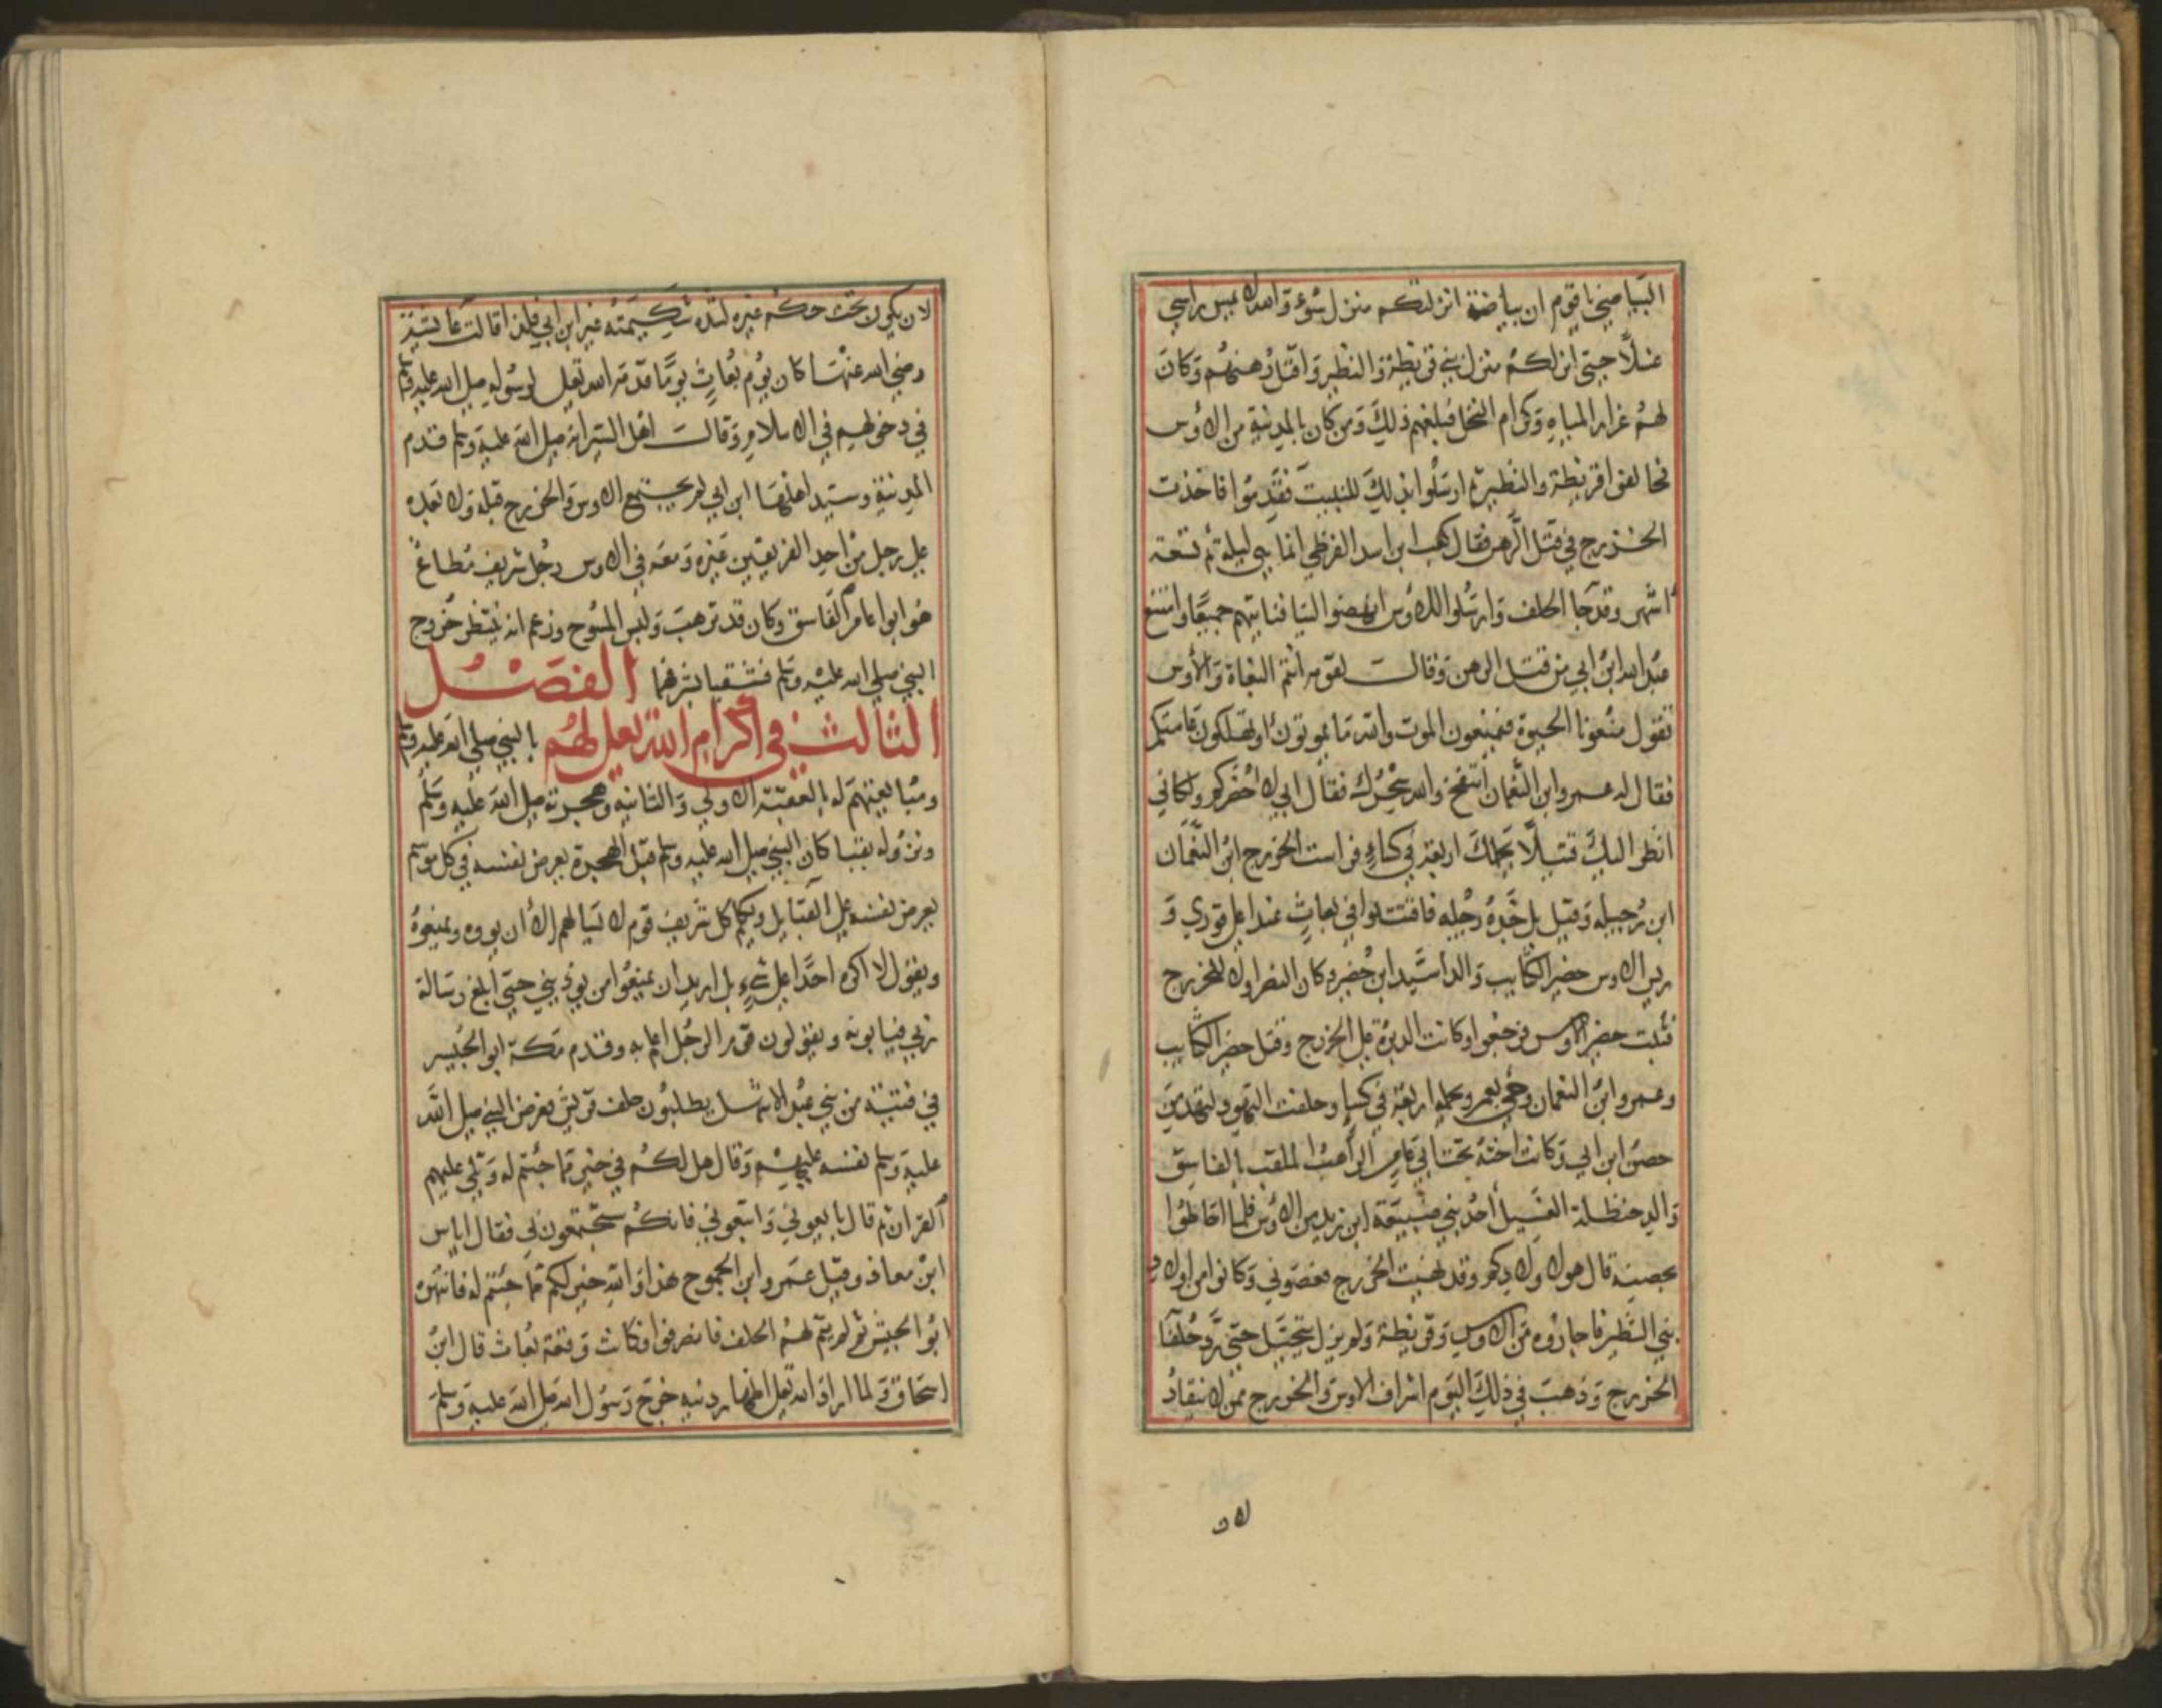 البياضي يا قوم ان بياضة انزلتكم منزل سوء والله لا يمس راسي
غسلا حتى انزلكم منزل بني قريظة والنظير واقتل رهنهم وكان
لهم غرار المياه وكرام النخل فبلغهم ذلك ومن كان بالمدينة من الاوس
فحالفوا قريظة والنظير ثم ارسلوا بذلك للنبيت فقدموا فاخذت
الخزرج في قتل الرهن فقال كعب ابن اسد القرظي انما هي ليلة ثم تسعة
اشهر وقد جا الحلف وارسلوا للاوس انهضوا الينا فناتيهم جميعا وامتنع
عبد الله ابن ابي من قتل الرهن وقال لقومه انتم البغاة والاوس
تقول منعونا الحيوة فيمنعون الموت والله ما يموتون او تهلكون عامتكم
فقال له عمرو ابن النعمان انتفخ والله سحرك فقال اني لا احضركم ولكاني
انظر اليك قتيلا يحملك اربعة في كساء فراست الخزرج ابن النعمان
ابن رجيله وقيل بل جده رجيله فاقتتلوا في بعاث عند اعلى قوري و
ريس الاوس حضير الكتايب والد اسيد ابن حضير وكان النصر اولا للخزرج
فثبت حضير الاوس فرجعوا وكانت الدبرة على الخزرج وقتل حضير الكتايب
وعمرو ابن النعمان وجي بعمرو يحمله اربعة في كسا وحلفت اليهود لتهدمن
حصن ابن ابي وكانت اخته تحت ابي عامر الراهب الملقب بالفاسق
والد حنظلة الغسيل احد بني ضبيعة ابن زيد من الاوس فلما احاطوا
بحصنه قال هولا ولادكم وقد نهيت الخزرج فعصوني وكانوا من اولاد
بني النظير فاجاروه من الاوس وقريظة ولم يزل يتحيل حتى رد حلفا
الخزرج وذهب في ذلك اليوم اشراف الاوس والخزرج ممن لا ينقاد
لان
لان يكون تحت حكم غيره لشدة شكيمته غير ابن ابي فلذا قالت عايشة
رضي الله عنها كان يوم بعاث يوما قدمه الله تعلى لرسوله صلى الله عليه وسلم
في دخولهم في الاسلام وقالت اهل السير انه صلى الله عليه وسلم قدم
المدينة وسيد اهلها ابن ابي لم يجتمع الاوس والخزرج قبله ولا بعده
على رجل من احد الفريقين غيره ومعه في الاوس رجل شريف مطاع
هو ابو عامر الفاسق وكان قد ترهب ولبس المسوح وزعم انه ينتظر خروج
النبي صلى الله عليه وسلم فشقيا بشرفهما الفصل
الثالث في اكرام الله تعلى لهم بالنبي صلى الله عليه وسلم
ومبايعتهم له بالعقبة الاولى والثانيه وهجرته صلى الله عليه وسلم
ونزوله بقبا كان النبي صلى الله عليه وسلم قبل الهجرة يعرض نفسه في كل موسم
يعرض نفسه على القبايل ويكلم كل شريف قوم لا يسالهم الا ان يووه ويمنعوه
ويقول لا اكره احدا على شيء بل اريد ان يمنعوا من يوذيني حتى ابلغ رسالة
ربي فيابونه ويقولون قوم الرجل اعلم به وقدم مكة ابو الحيسر
في فتية من بني عبد الاشهل يطلبون حلف قريش فعرض النبي صلى الله
عليه وسلم نفسه عليهم وقال هل لكم في خير مما جئتم له وتلى عليهم
القران ثم قال بايعوني واتبعوني فانكم ستجتمعون لي فقال اياس
ابن معاذ وقيل عمرو ابن الجموح هذا والله خير لكم مما جئتم له فانتهره
ابو الحيسر ثم لم يتم لهم الحلف فانصرفوا فكانت وقعة بعاث قال ابن
اسحاق ولما اراد الله تعلى اظهار دينه خرج رسول الله صلى الله عليه وسلم